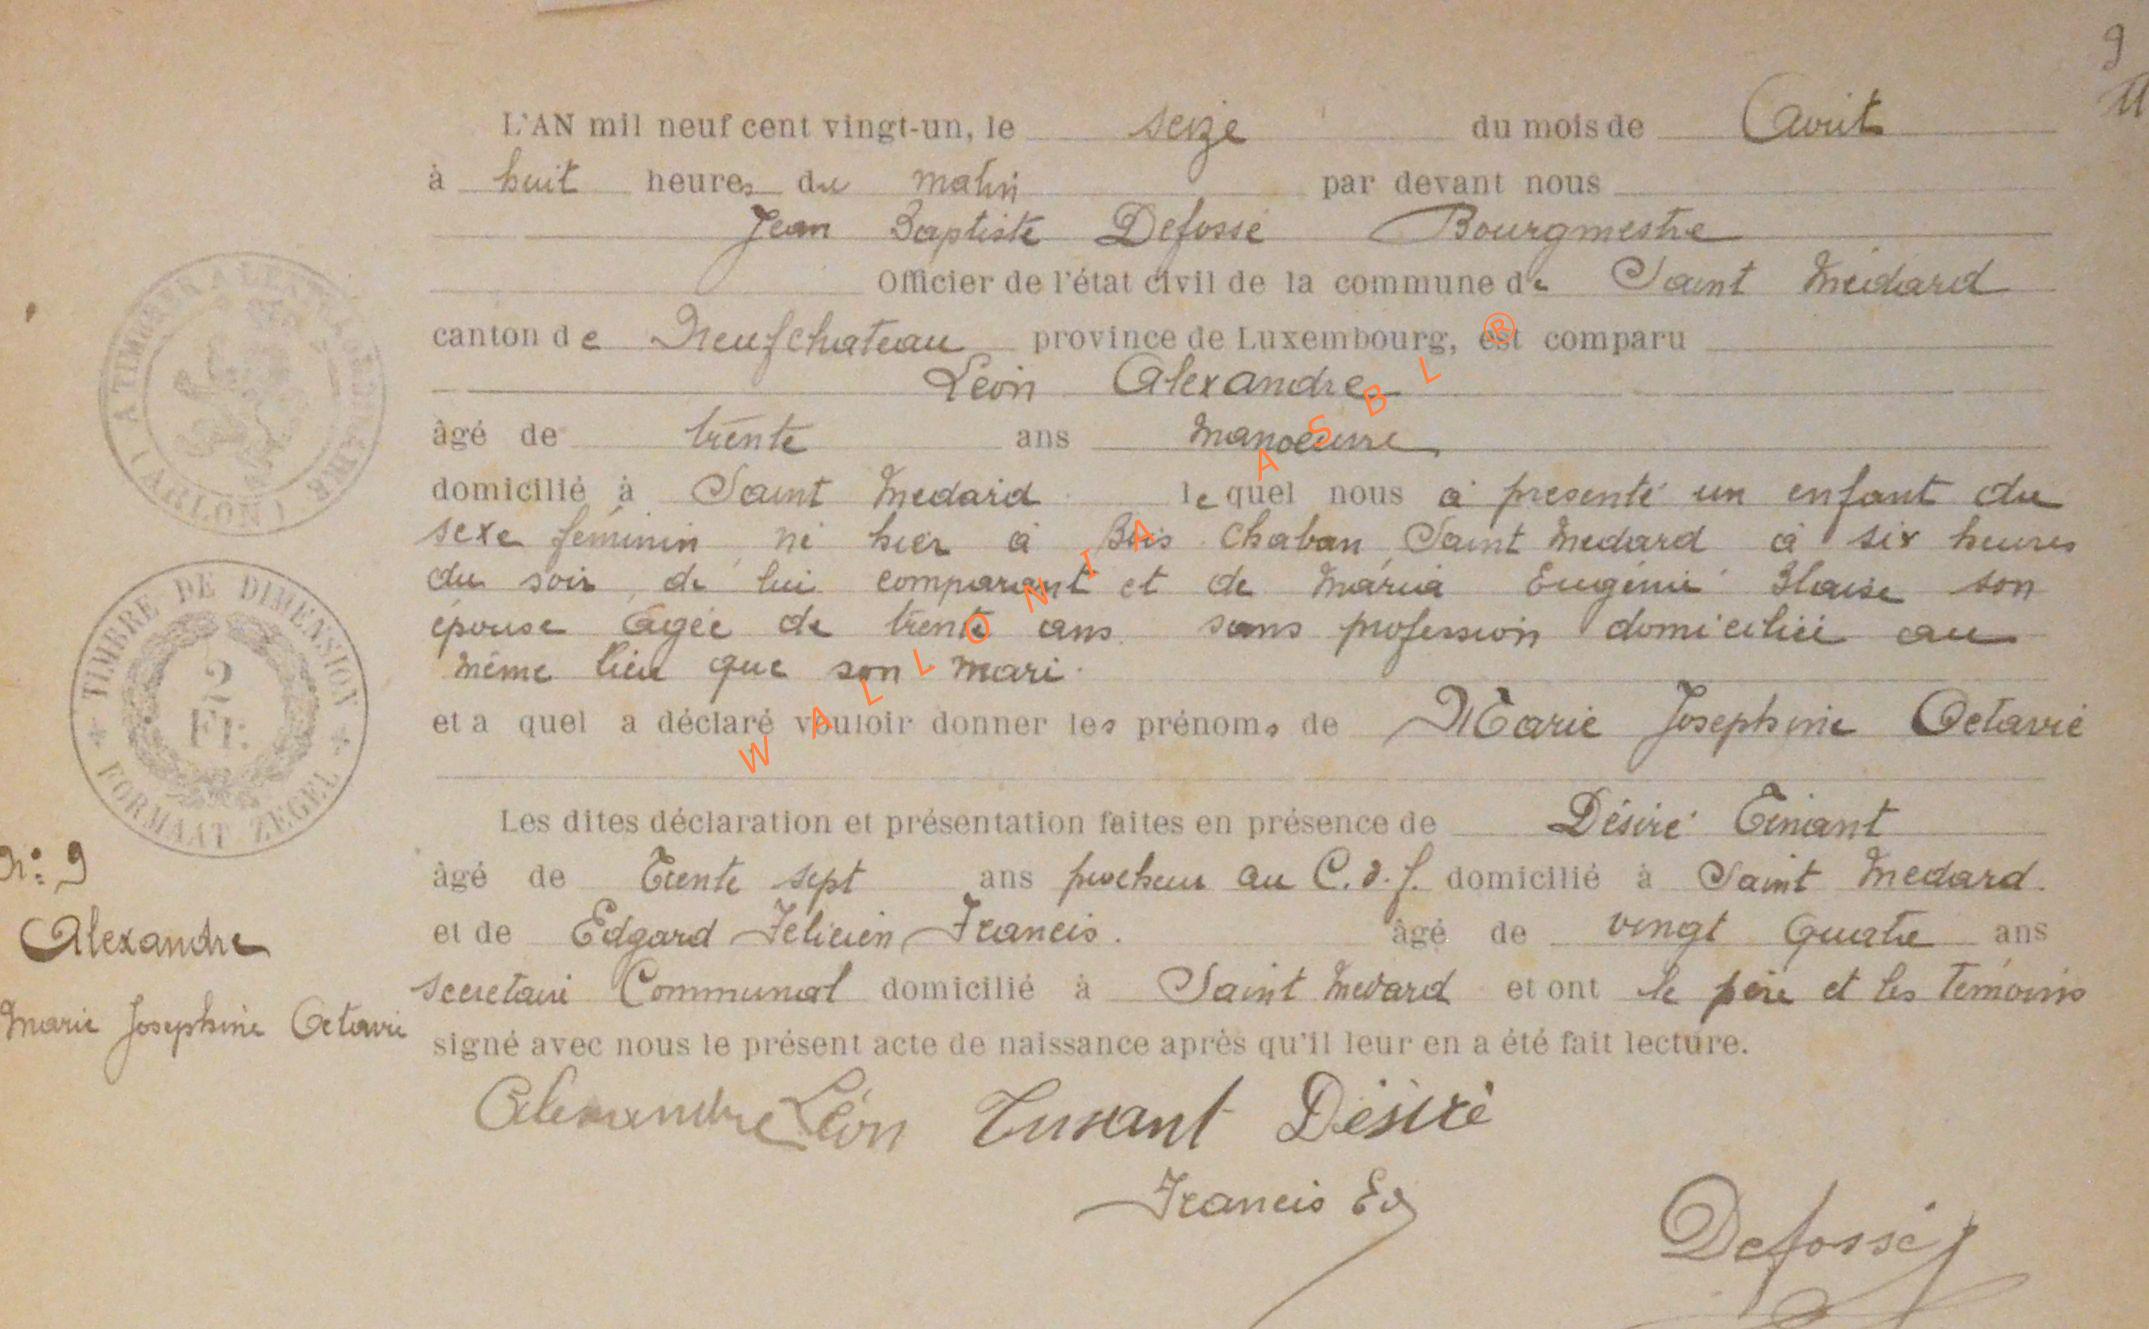 9
L'AN mil neuf cent vingt-un, le seize du mois de Avril
à huit heures du matin par devant nous
Jean Baptiste Defossé Bourgmestre
Officier de l'état civil de la commune de Saint Médard
canton de Neufchateau province de Luxembourg, est comparu
Léon Alexandre
âgé de trente ans manoeuvre
domicilié à Saint Medard lequel nous a presenté un enfant du
sexe féminin né hier à Bois Chaban Saint Medard à six heures
du soir, de lui comparant et de Maria Eugénie Blaise son
épouse agée de trente ans sans profession domiciliée au
même lieu que son mari.
et a quel a déclaré vouloir donner les prénoms de Marie Josephine Octavie
Les dites déclaration et présentation faites en présence de Désiré Tinant
âgé de Trente sept ans piocheur au C.d.f. domicilié à Saint Medard.
et de Edgard Félicien Francis. âgé de vingt quatre ans
secretaire Communal domicilié à Saint Medard et ont le père et les témoins
signé avec nous le présent acte de naissance après qu'il leur en a été fait lecture.
Alexandre Léon Tinant Désiré
Francis Ed
Defossé
A TIMBRER A L'EXTRAORDINAIRE (ARLON)
TIMBRE DE DIMENSION
2
Fr.
FORMAAT ZEGEL
N°: 9
Alexandre
Marie Josephine Octavie
WALLONIA ASBL ®